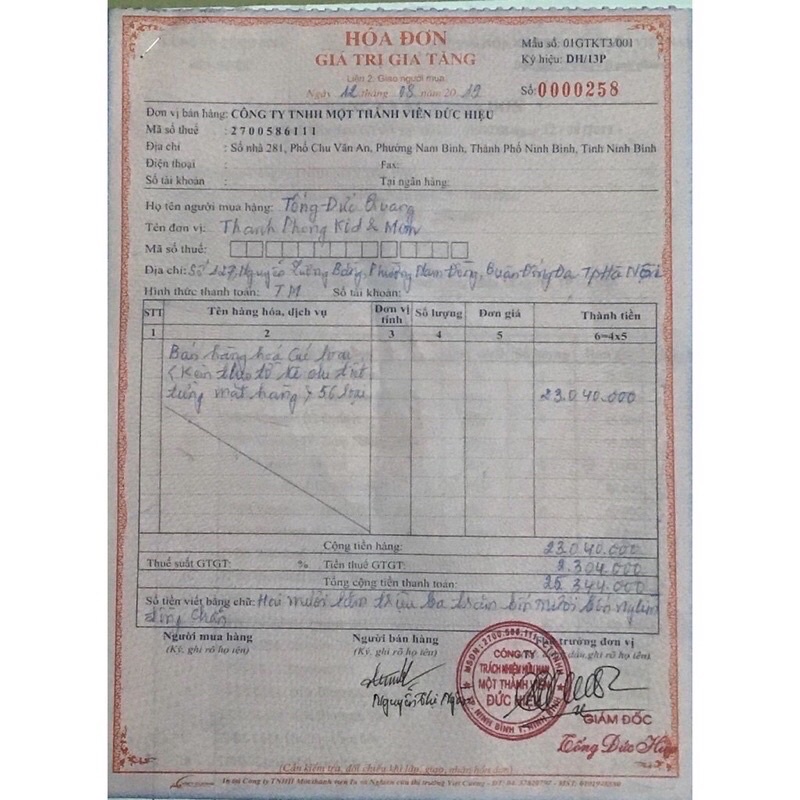 HÓA ĐƠN
GIÁ TRỊ GIA TĂNG
Liên 2: Giao người mua
Ngày 12 tháng 08 năm 2019
Mẫu số: 01GTKT3/001
Ký hiệu: DH/13P
Số: 0000258
Đơn vị bán hàng: CÔNG TY TNHH MỘT THÀNH VIÊN ĐỨC HIẾU
Mã số thuế : 2700586111
Địa chỉ : Số nhà 281, Phố Chu Văn An, Phường Nam Bình, Thành Phố Ninh Bình, Tỉnh Ninh Bình
Điện thoại : Fax:
Số tài khoản : Tại ngân hàng:
Họ tên người mua hàng: Tống Đức Quang
Tên đơn vị: Thanh Phong Kid & Mom
Mã số thuế:
Địa chỉ: Số 127, Nguyễn Lương Bằng, Phường Nam Đồng, Quận Đống Đa TP Hà Nội
Hình thức thanh toán: TM Số tài khoản:
STT Tên hàng hóa, dịch vụ Đơn vị tính Số lượng Đơn giá Thành tiền
1 2 3 4 5 6=4x5
Bán hàng hoá các loại
(Kèm theo tờ kê chi tiết
từng mặt hàng) 56 loại 23.040.000
Cộng tiền hàng: 23.040.000
Thuế suất GTGT: % Tiền thuế GTGT: 2.304.000
Tổng cộng tiền thanh toán: 25.344.000
Số tiền viết bằng chữ: Hai mươi lăm triệu ba trăm bốn mươi bốn nghìn
đồng chẵn
Người mua hàng Người bán hàng Thủ trưởng đơn vị
(Ký, ghi rõ họ tên) (Ký, ghi rõ họ tên) dấu, ghi rõ họ tên)
M.S.D.N: 2700.586.111
CÔNG TY
TRÁCH NHIỆM HỮU HẠN
MỘT THÀNH VIÊN
ĐỨC HIẾU
TP. NINH BÌNH T. NINH BÌNH
Nguyễn Thị
GIÁM ĐỐC
Tống Đức Hiếu
(Cần kiểm tra, đối chiếu khi lập, giao, nhận hóa đơn)